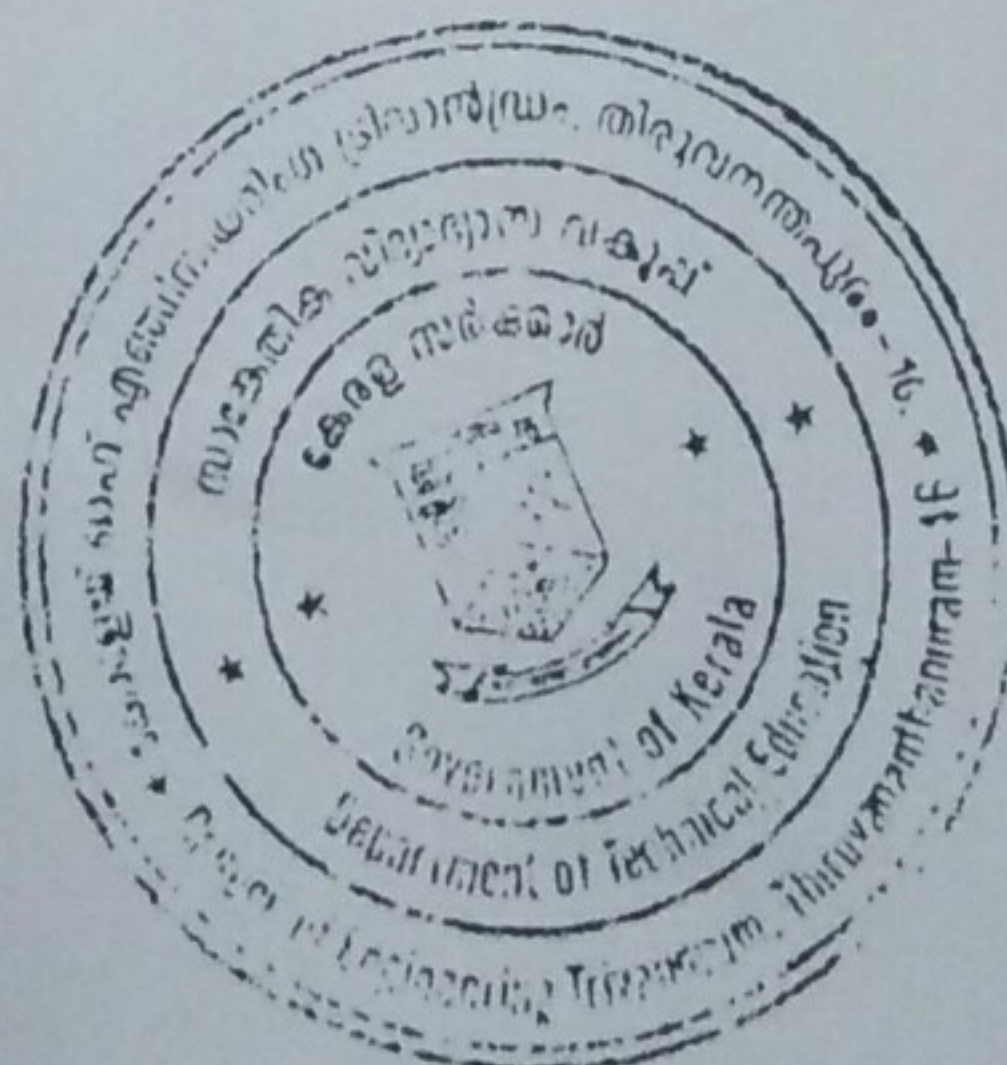 കോളേജ് ഓഫ് എഞ്ചിനീയറിംഗ് ട്രിവാൻഡ്രം, തിരുവനന്തപുരം - 16.
സാങ്കേതിക വിദ്യാഭ്യാസ വകുപ്പ്
കേരള സർക്കാർ
Government of Kerala
Department of Technical Education
College of Engineering Trivandrum, Thiruvananthapuram-16